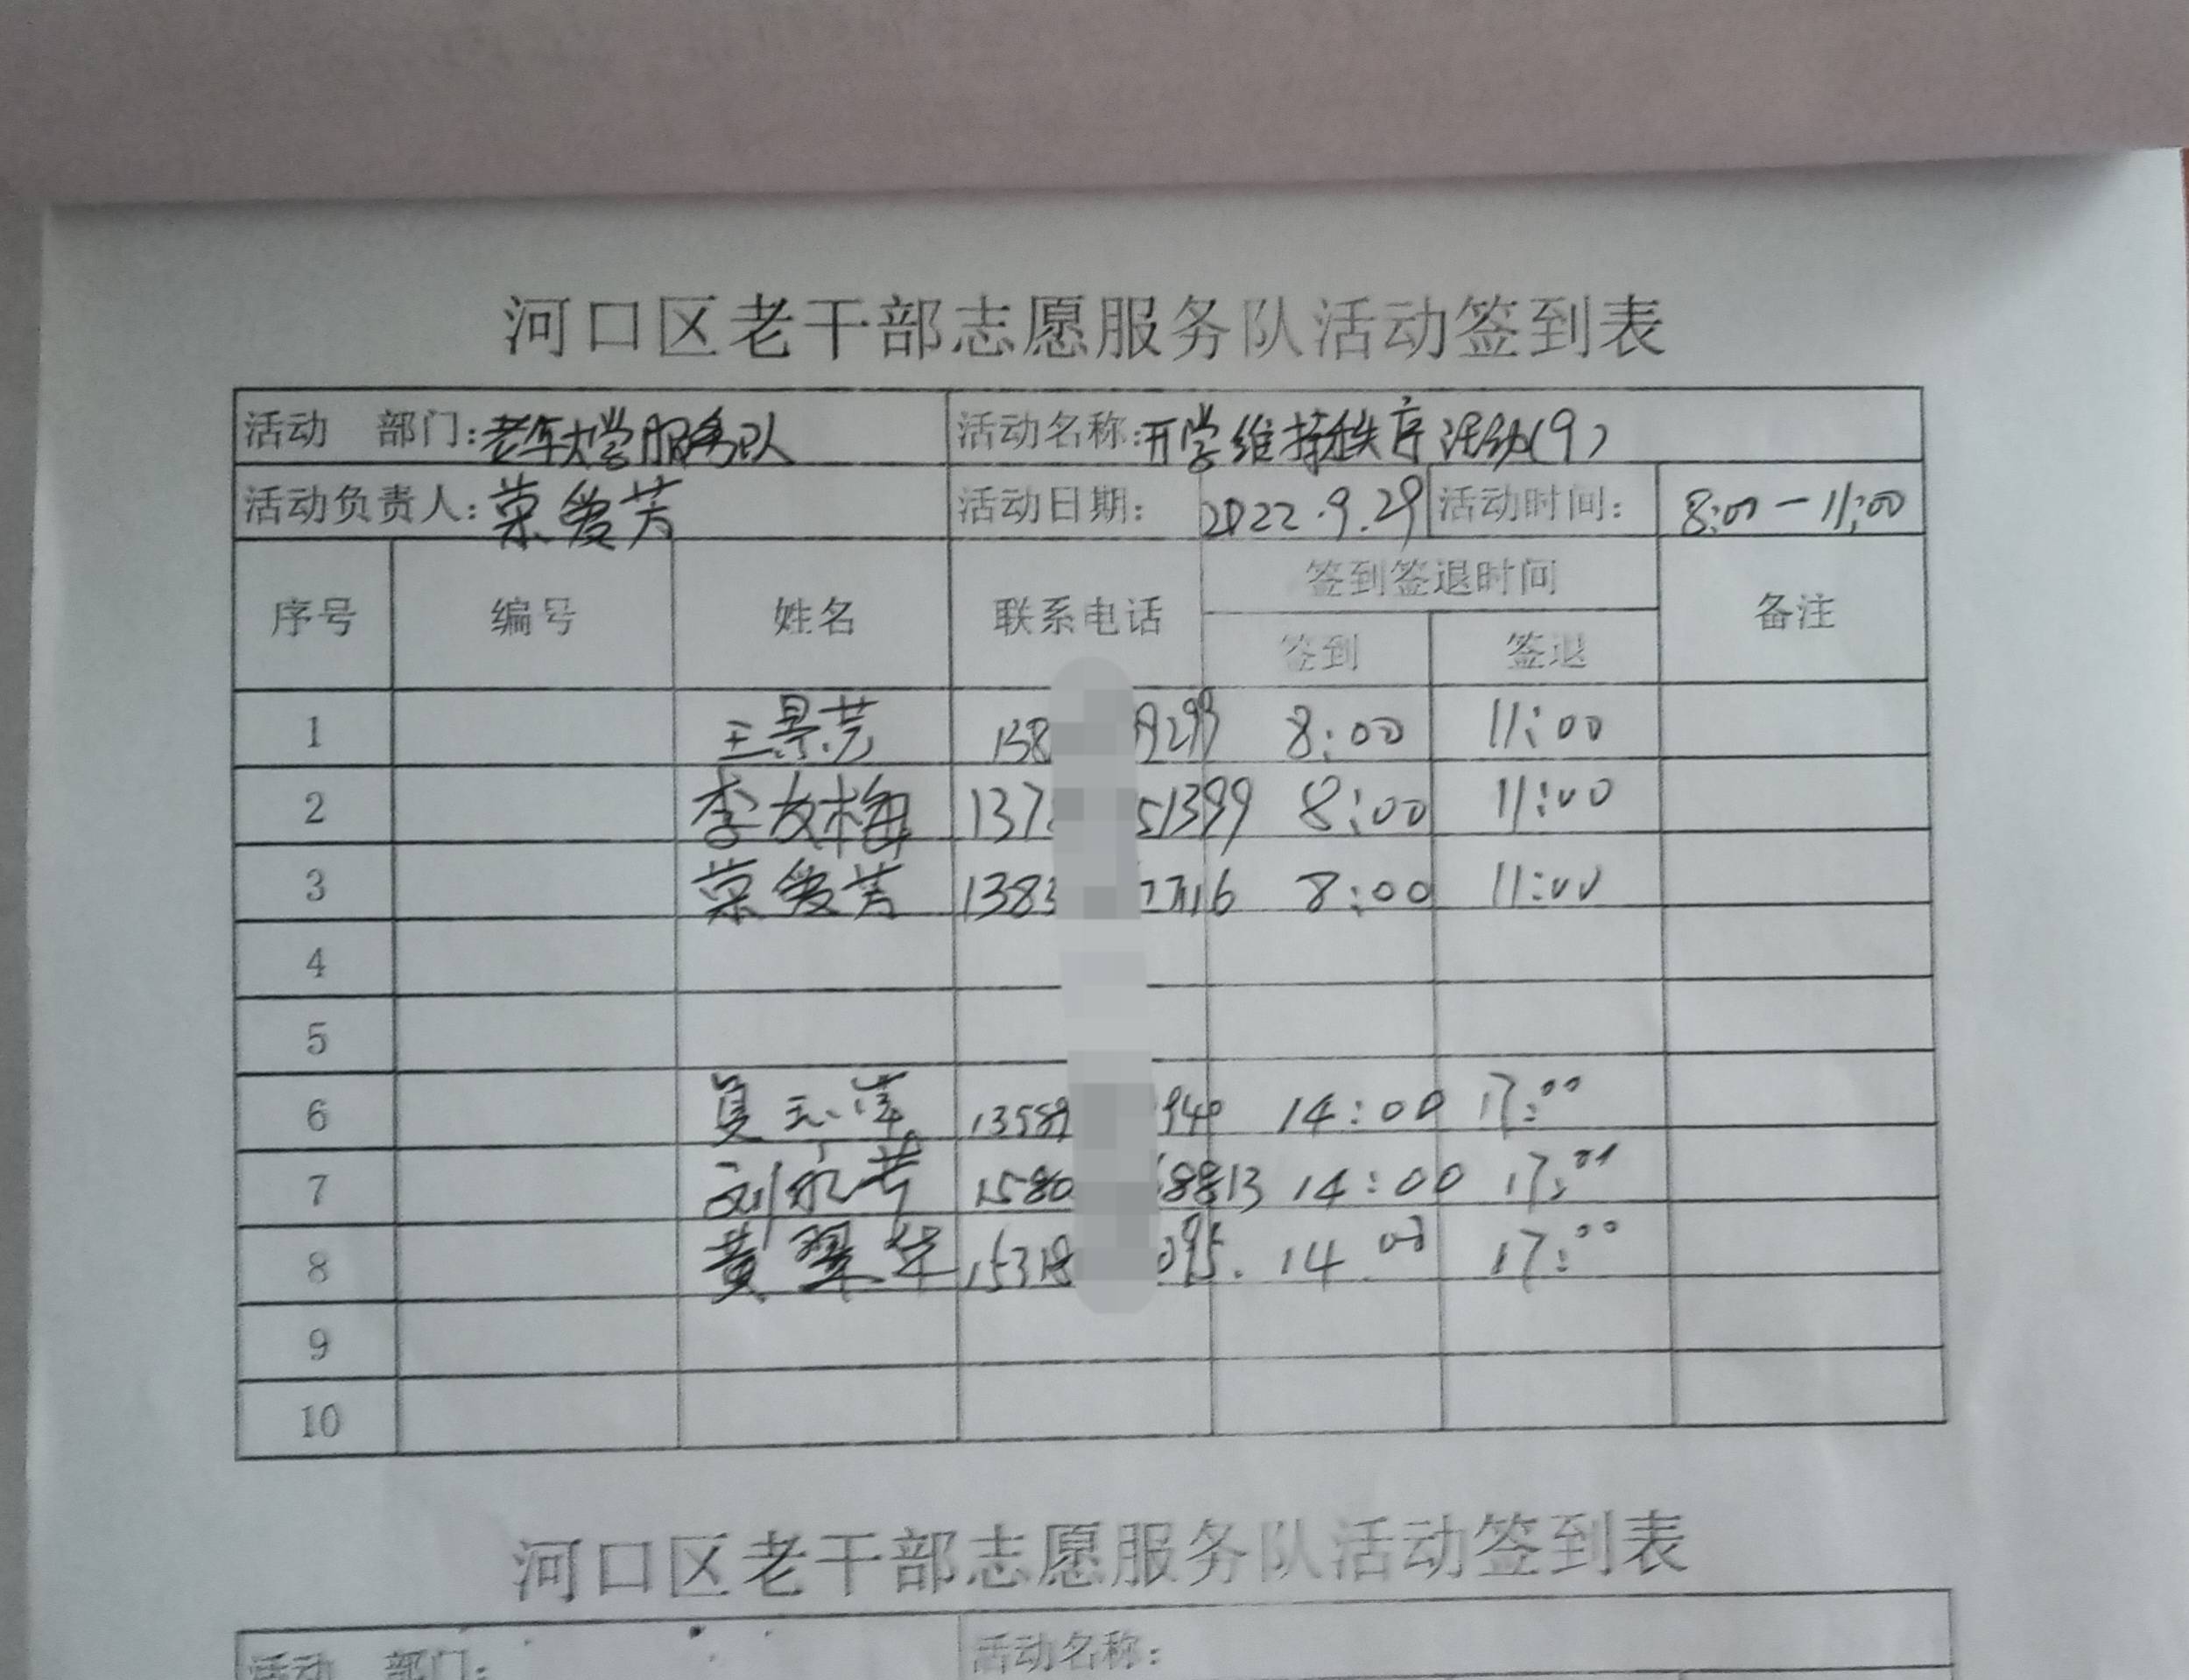 河口区老干部志愿服务队活动签到表
活动 部门:老年大学服务队 活动名称:开学维持秩序活动(9)
活动负责人:荣爱芳 活动日期: 2022.9.29 活动时间: 8:00-11:00
序号 编号 姓名 联系电话 签到签退时间 备注
签到 签退
1 王景芳 138 9293 8:00 11:00
2 李友梅 137 51399 8:00 11:00
3 荣爱芳 138 7716 8:00 11:00
4
5
6 13589 940 14:00 17:00
7 刘永芳 1580 8813 14:00 17:00
8 黄翠华 15318 095. 14 00 17:00
9
10
河口区老干部志愿服务队活动签到表
活动 部门: 活动名称: